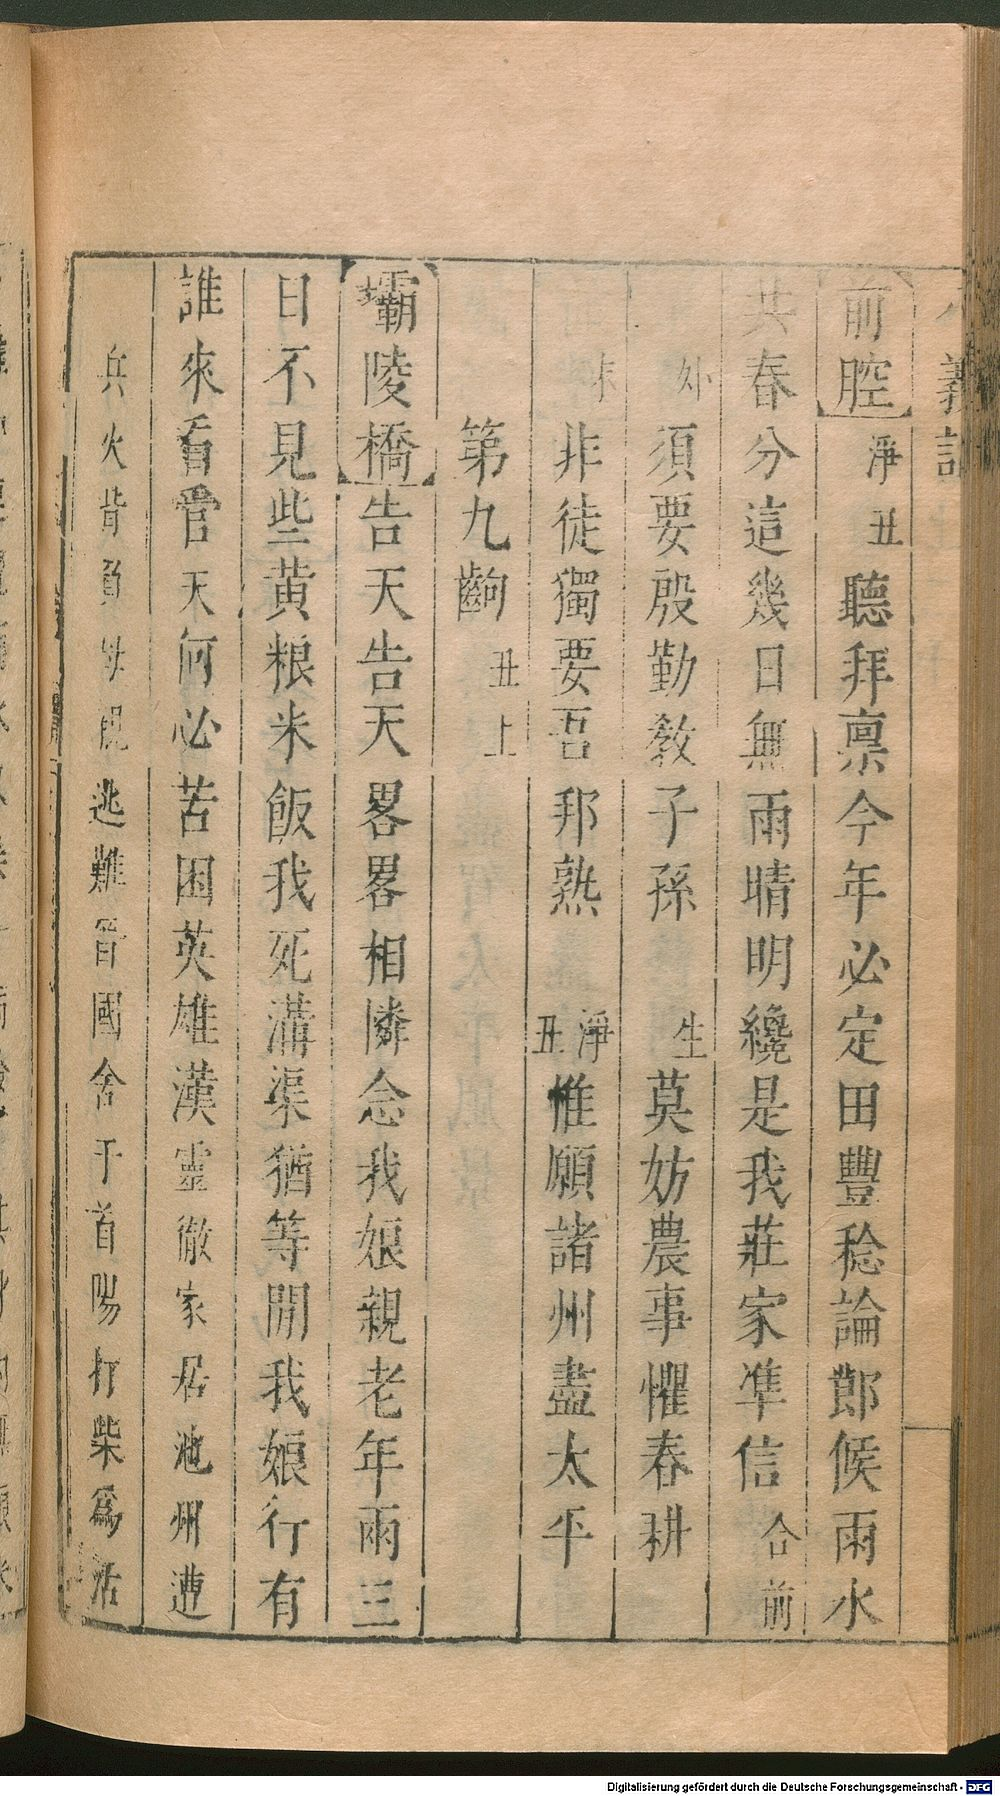 義記
前腔 淨丑 聽拜禀今年必定田豐稔論鄼候雨水
共春分這幾日無雨晴明纔是我莊家凖信 合前
外 須要殷勤敎子孫 生 莫妨農事懼春耕
末 非徒獨要吾邦熟 淨丑 惟願諸州盡太平
第九齣 丑上
霸陵橋 告天告天畧畧相憐念我娘親老年兩三
日不見些黄粮米飯我死溝渠猶等閒我娘行有
誰來看管 天何必苦困英雄漢靈徹家居池州遭
兵火背負母親逃難晉國舍于首陽打柴爲活
Digitalisierung gefördert durch die Deutsche Forschungsgemeinschaft - DFG